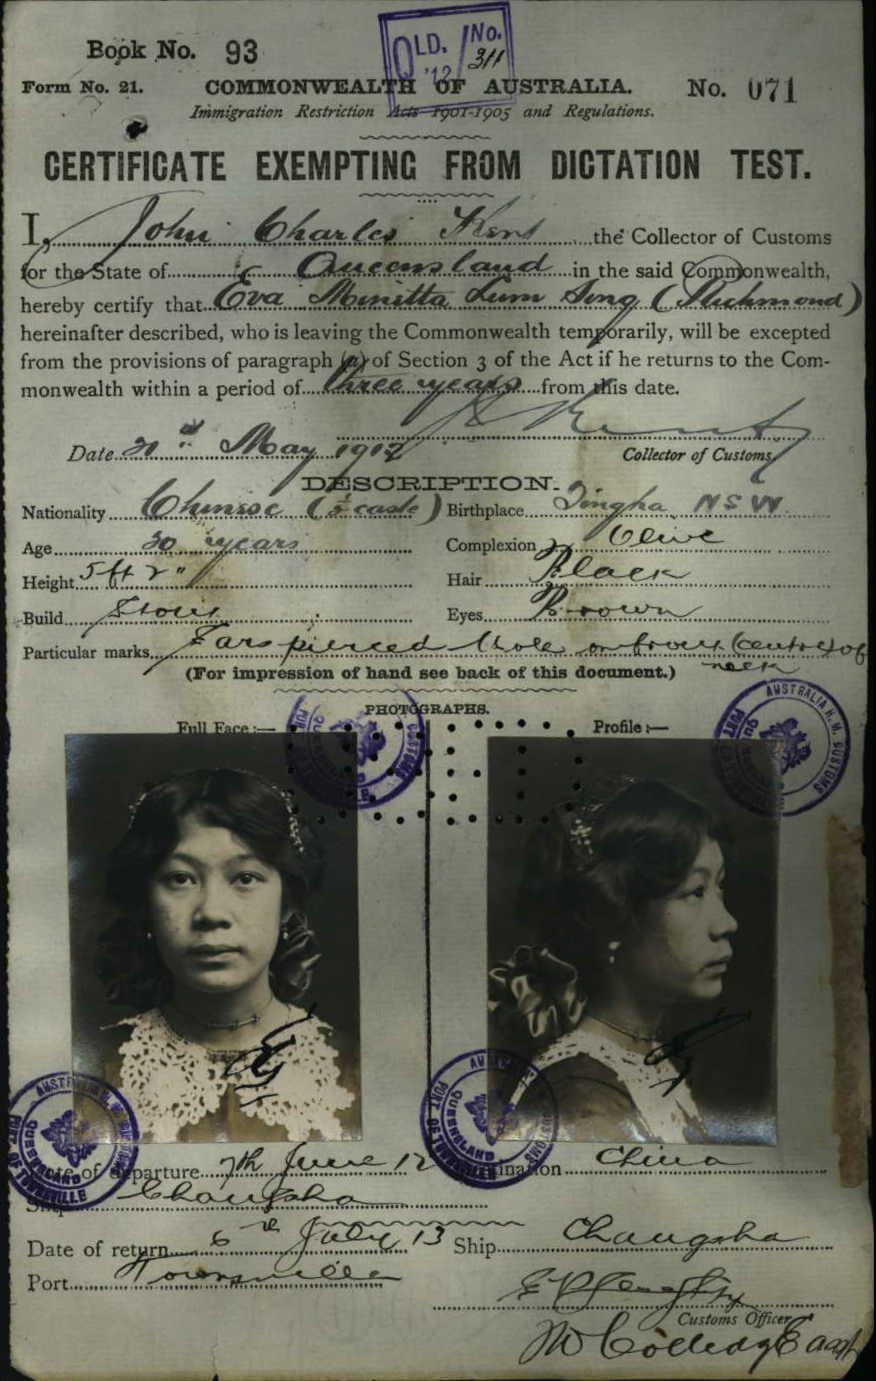 Book No. 93
QLD. No.
'12 311
Form No. 21. COMMONWEALTH OF AUSTRALIA. No. 071
Immigration Restriction Acts 1901-1905 and Regulations.
CERTIFICATE EXEMPTING FROM DICTATION TEST.
I, John Charles Kent the Collector of Customs
for the State of Queensland in the said Commonwealth,
hereby certify that Eva Minitta Lum Sing (Richmond)
hereinafter described, who is leaving the Commonwealth temporarily, will be excepted
from the provisions of paragraph (a) of Section 3 of the Act if he returns to the Com-
monwealth within a period of three years from this date.
Date May 1912 Collector of Customs
DESCRIPTION.
Nationality Chinese (½ caste) Birthplace Tingha NSW
Age 30 years Complexion Olive
Height 5ft 2" Hair Black
Build Stout Eyes Brown
Particular marks Ears pierced Mole on front (centre) of
neck
(For impression of hand see back of this document.)
PHOTOGRAPHS.
Full Face :— Profile :—
AUSTRALIA H.M. CUSTOMS
Date of departure 7th June 12 Destination China
Ship Changsha
Date of return 6th July 13 Ship Changsha
Port Townsville
Customs Officer